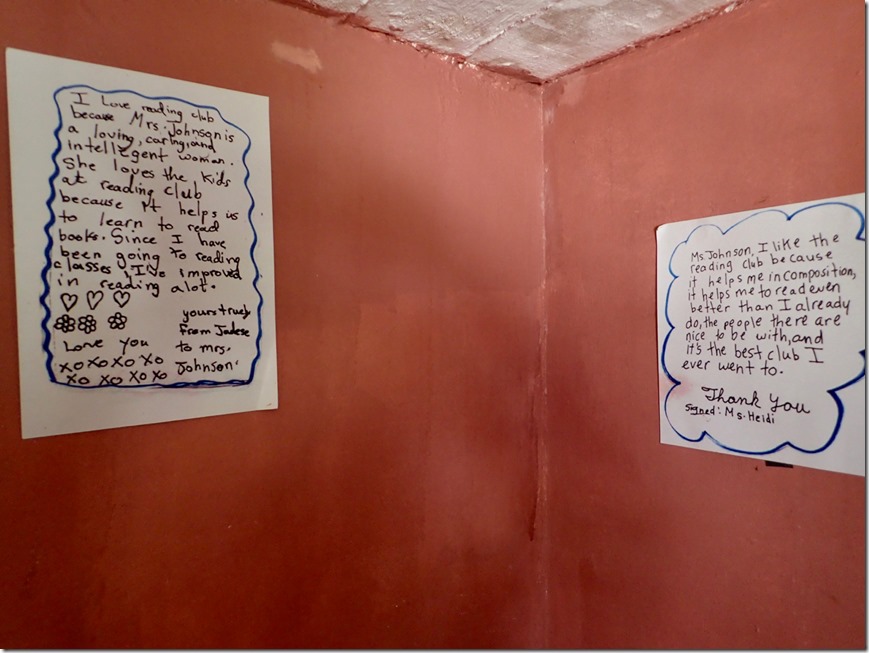 I Love reading club
because Mrs. Johnson is
a loving, caring, and
intellegent woman.
She loves the kids
at reading club
because it helps us
to learn to read
books. Since I have
been going to reading
classes I've improved
in reading alot.
yours truely
from Jadese
Love you to mrs.
xo xo xo xo Johnson.
xo xo xo xo
Ms Johnson, I like the
reading club because
it helps me in composition,
it helps me to read even
better than I already
do, the people there are
nice to be with, and
it's the best club I
ever went to.
Thank You
Signed: Ms. Heidi